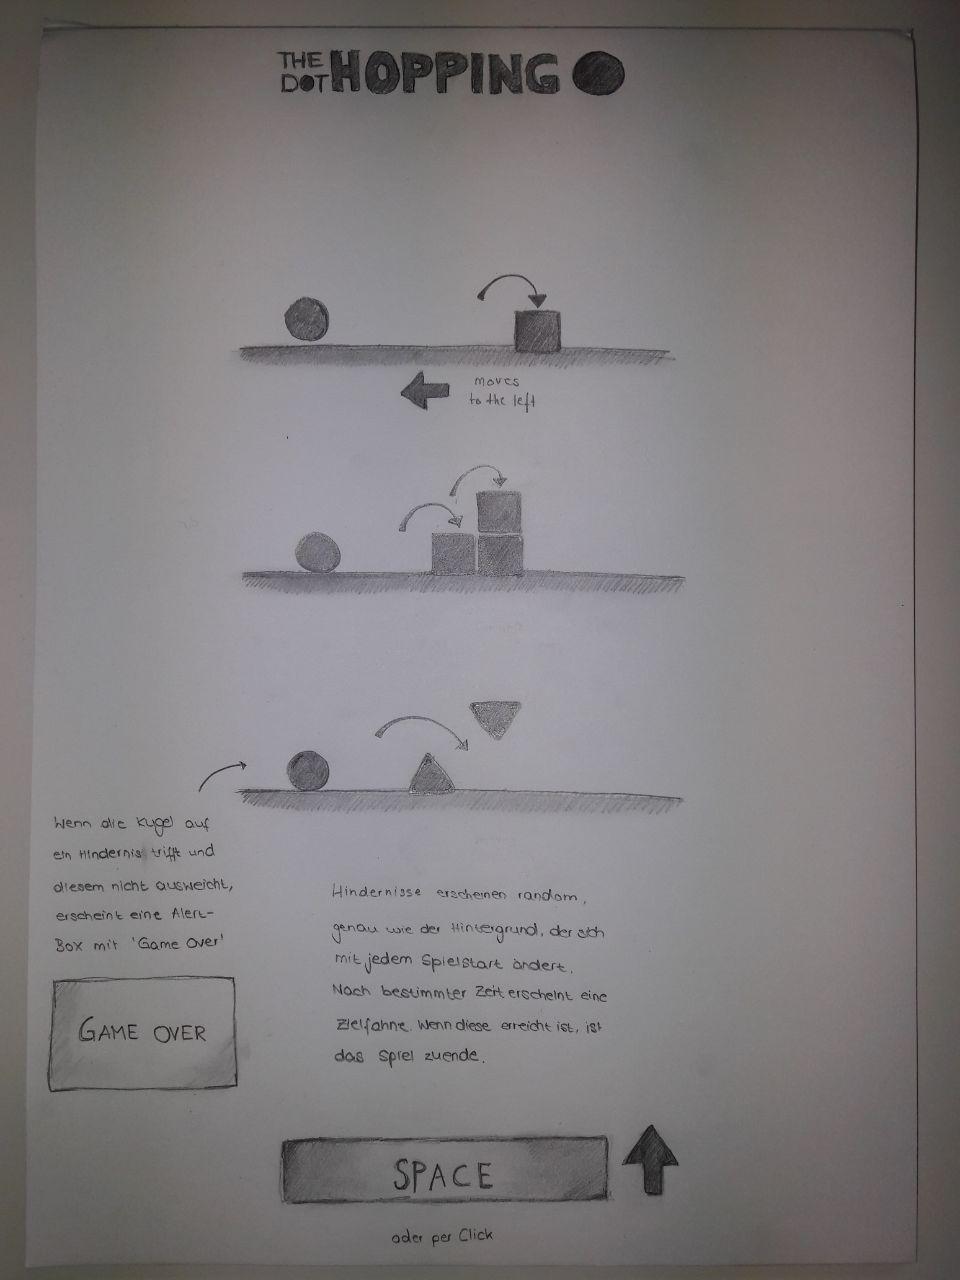 THE
DOT HOPPING
moves
to the left
Wenn die Kugel auf
ein Hindernis trifft und
diesem nicht ausweicht,
erscheint eine Alert-
Box mit 'Game Over'
GAME OVER
Hindernisse erscheinen random,
genau wie der Hintergrund, der sich
mit jedem Spielstart ändert.
Nach bestimmter Zeit erscheint eine
Zielfahne. Wenn diese erreicht ist, ist
das Spiel zuende.
SPACE
oder per Click